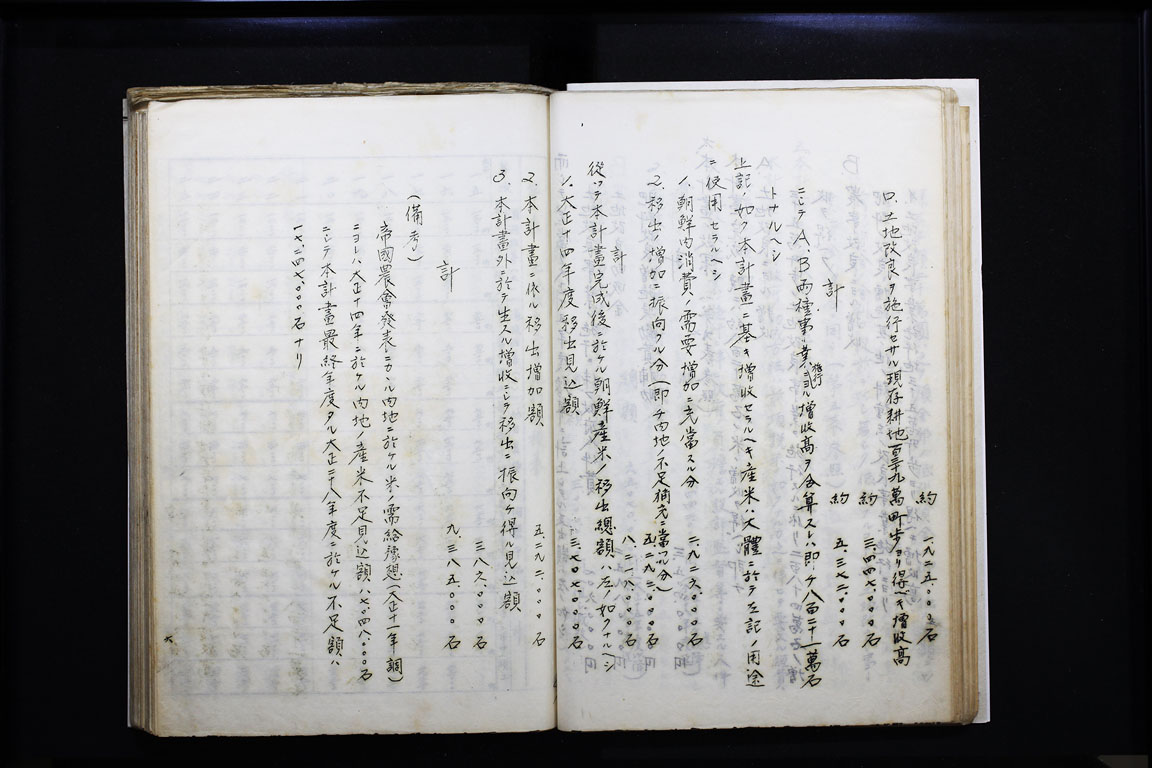 約 一、九二五、〇〇〇石
ロ、土地改良ヲ施行セサル現存耕地百三十九萬町歩ヨリ得ヘキ増収高
約 三、四四七、〇〇〇石
計 約 五、三七二、〇〇〇石
ニシテA、B両種事業施行ニヨル増収高ヲ合算スレハ即チ八百二十一萬石
トナルヘシ
上記ノ如ク本計畫ニ基キ増収セラルヘキ産米ハ大體ニ於テ左記ノ用途
ニ使用セラルヘシ
1、朝鮮内消費ノ需要増加ニ充當スル分
二、九二六、〇〇〇石
2、移出ノ増加ニ振向クル分(即チ内地ノ不足補充ニ當ツル分)
五、二九二、〇〇〇石
計 八、二一八、〇〇〇石
從ツテ本計畫完成後ニ於ケル朝鮮産米ノ移出總額ハ左ノ如クナルヘシ
1、大正十四年度移出見込額
三、七〇七、〇〇〇石
2、本計畫ニ依ル移出増加額
五、二九二、〇〇〇石
3、本計畫外ニ於テ生スル増收ニシテ移出ニ振向ケ得ル見込額
三八六、〇〇〇石
計 九、三八五、〇〇〇石
(備考)
帝國農會發表ニカヽル内地ニ於ケル米ノ需給豫想(大正十一年調)
ニヨレハ大正十四年ニ於ケル内地ノ産米不足見込額ハ七、〇四八、〇〇〇石
ニシテ本計畫最終年度タル大正二十八年度ニ於ケル不足額ハ
石ナリ